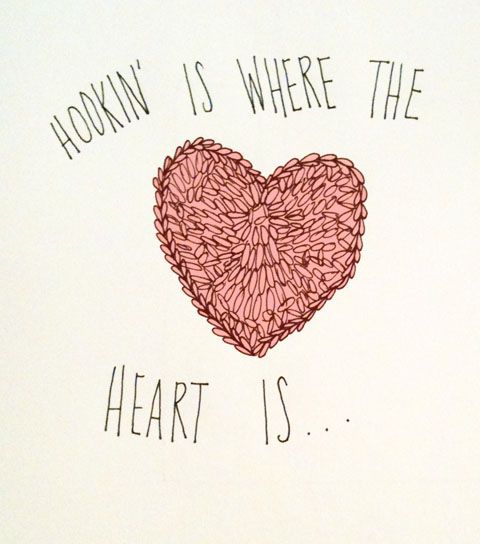 HOOKIN' IS WHERE THE
HEART IS...